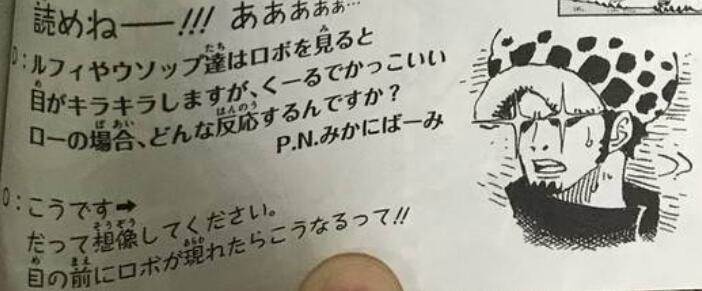 読めねー──!!! あああぁぁ…
D:ルフィやウソップ達はロボを見ると
目がキラキラしますが、くーるでかっこいい
ローの場合、どんな反応するんですか？
P.N.みかにばーみ
O:こうです➡
だって想像してください。
目の前にロボが現れたらこうなるって!!